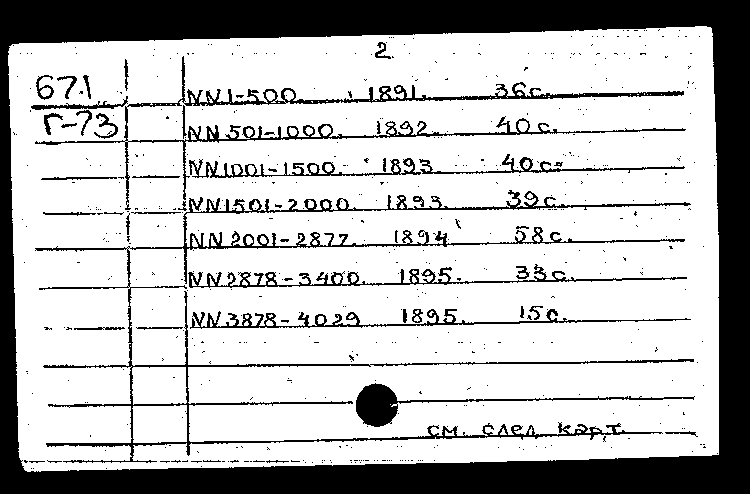 2
67.1
Г-73
NN1-500. 1891. 36с.
NN501-1000. 1892. 40с.
NN1001-1500. 1893. 40с.
NN1501-2000. 1893. 39с.
NN2001-2877. 1894 58с.
NN2878-3400. 1895. 33с.
NN3878-4029 1895. 15с.
см. след. карт.